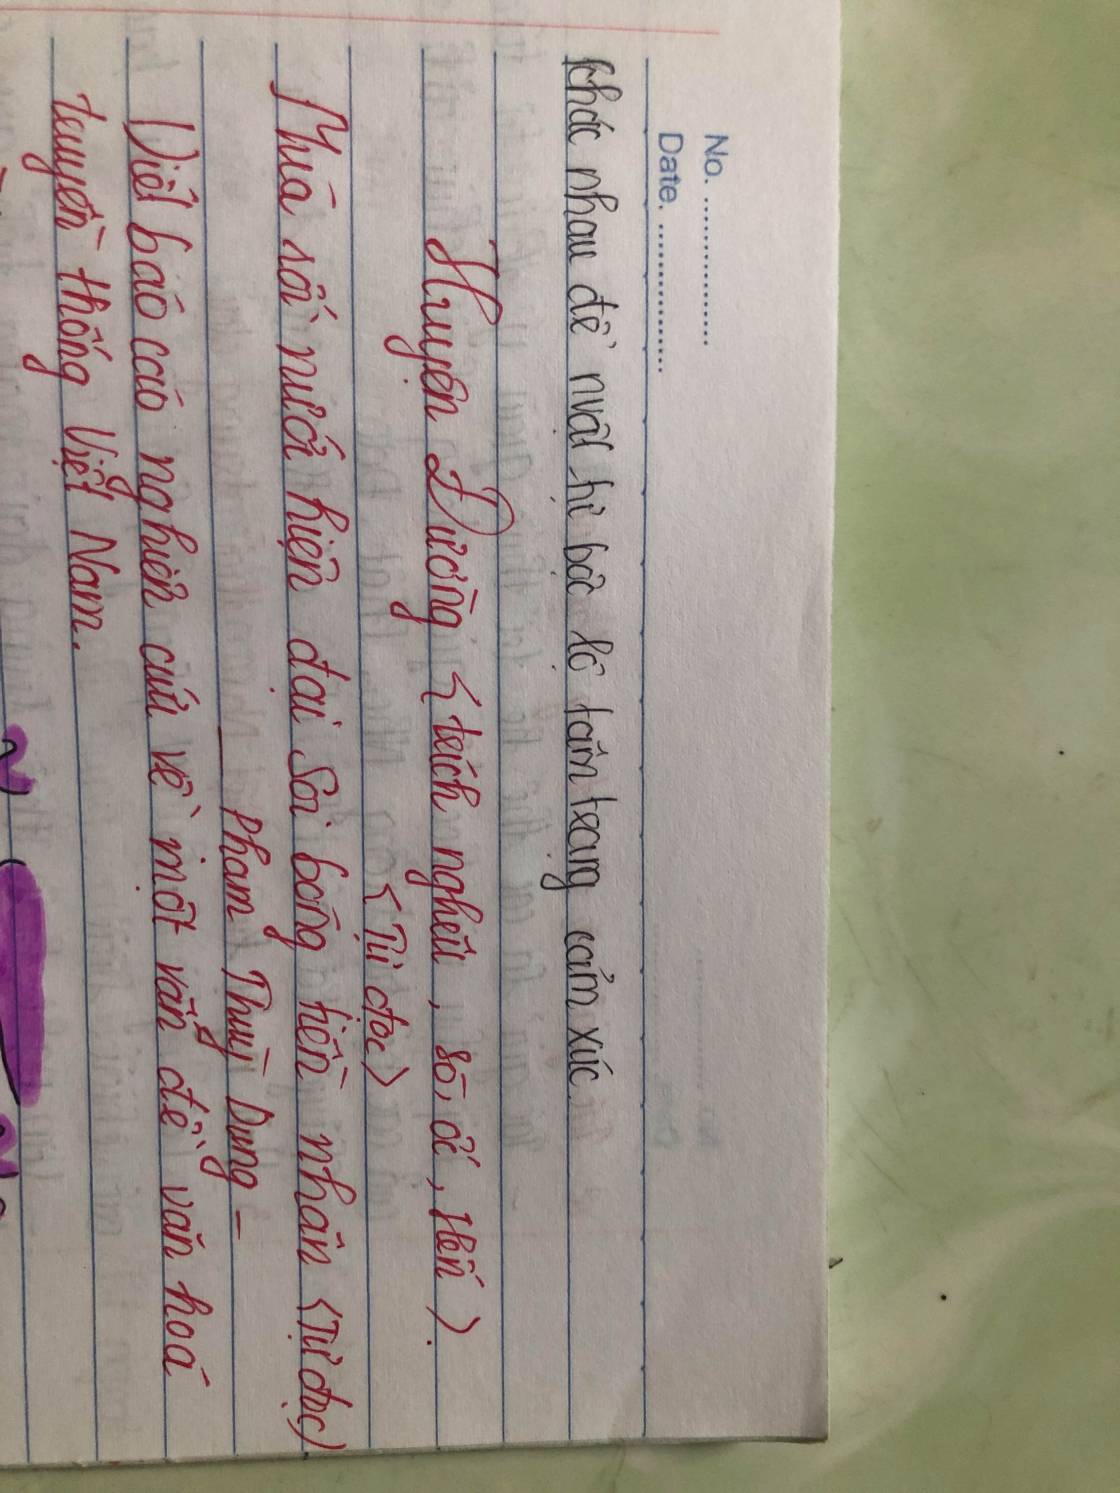 No. ................
Date. ................
khác nhau để nvật hị bộc lộ tâm trạng cảm xúc.
Huyện Đường (trích nghêu, sò, ốc, Hến).
(Tự đọc)
Múa rối nước hiện đại soi bóng tiền nhân (Tự đọc)
_ Phạm Thuỳ Dung _
Viết báo cáo nghiên cứu về một vấn đề văn hoá
truyền thống Việt Nam.